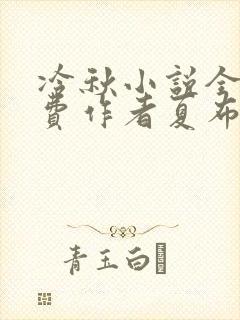 冷秋小説全
費作者夏布
青玉白